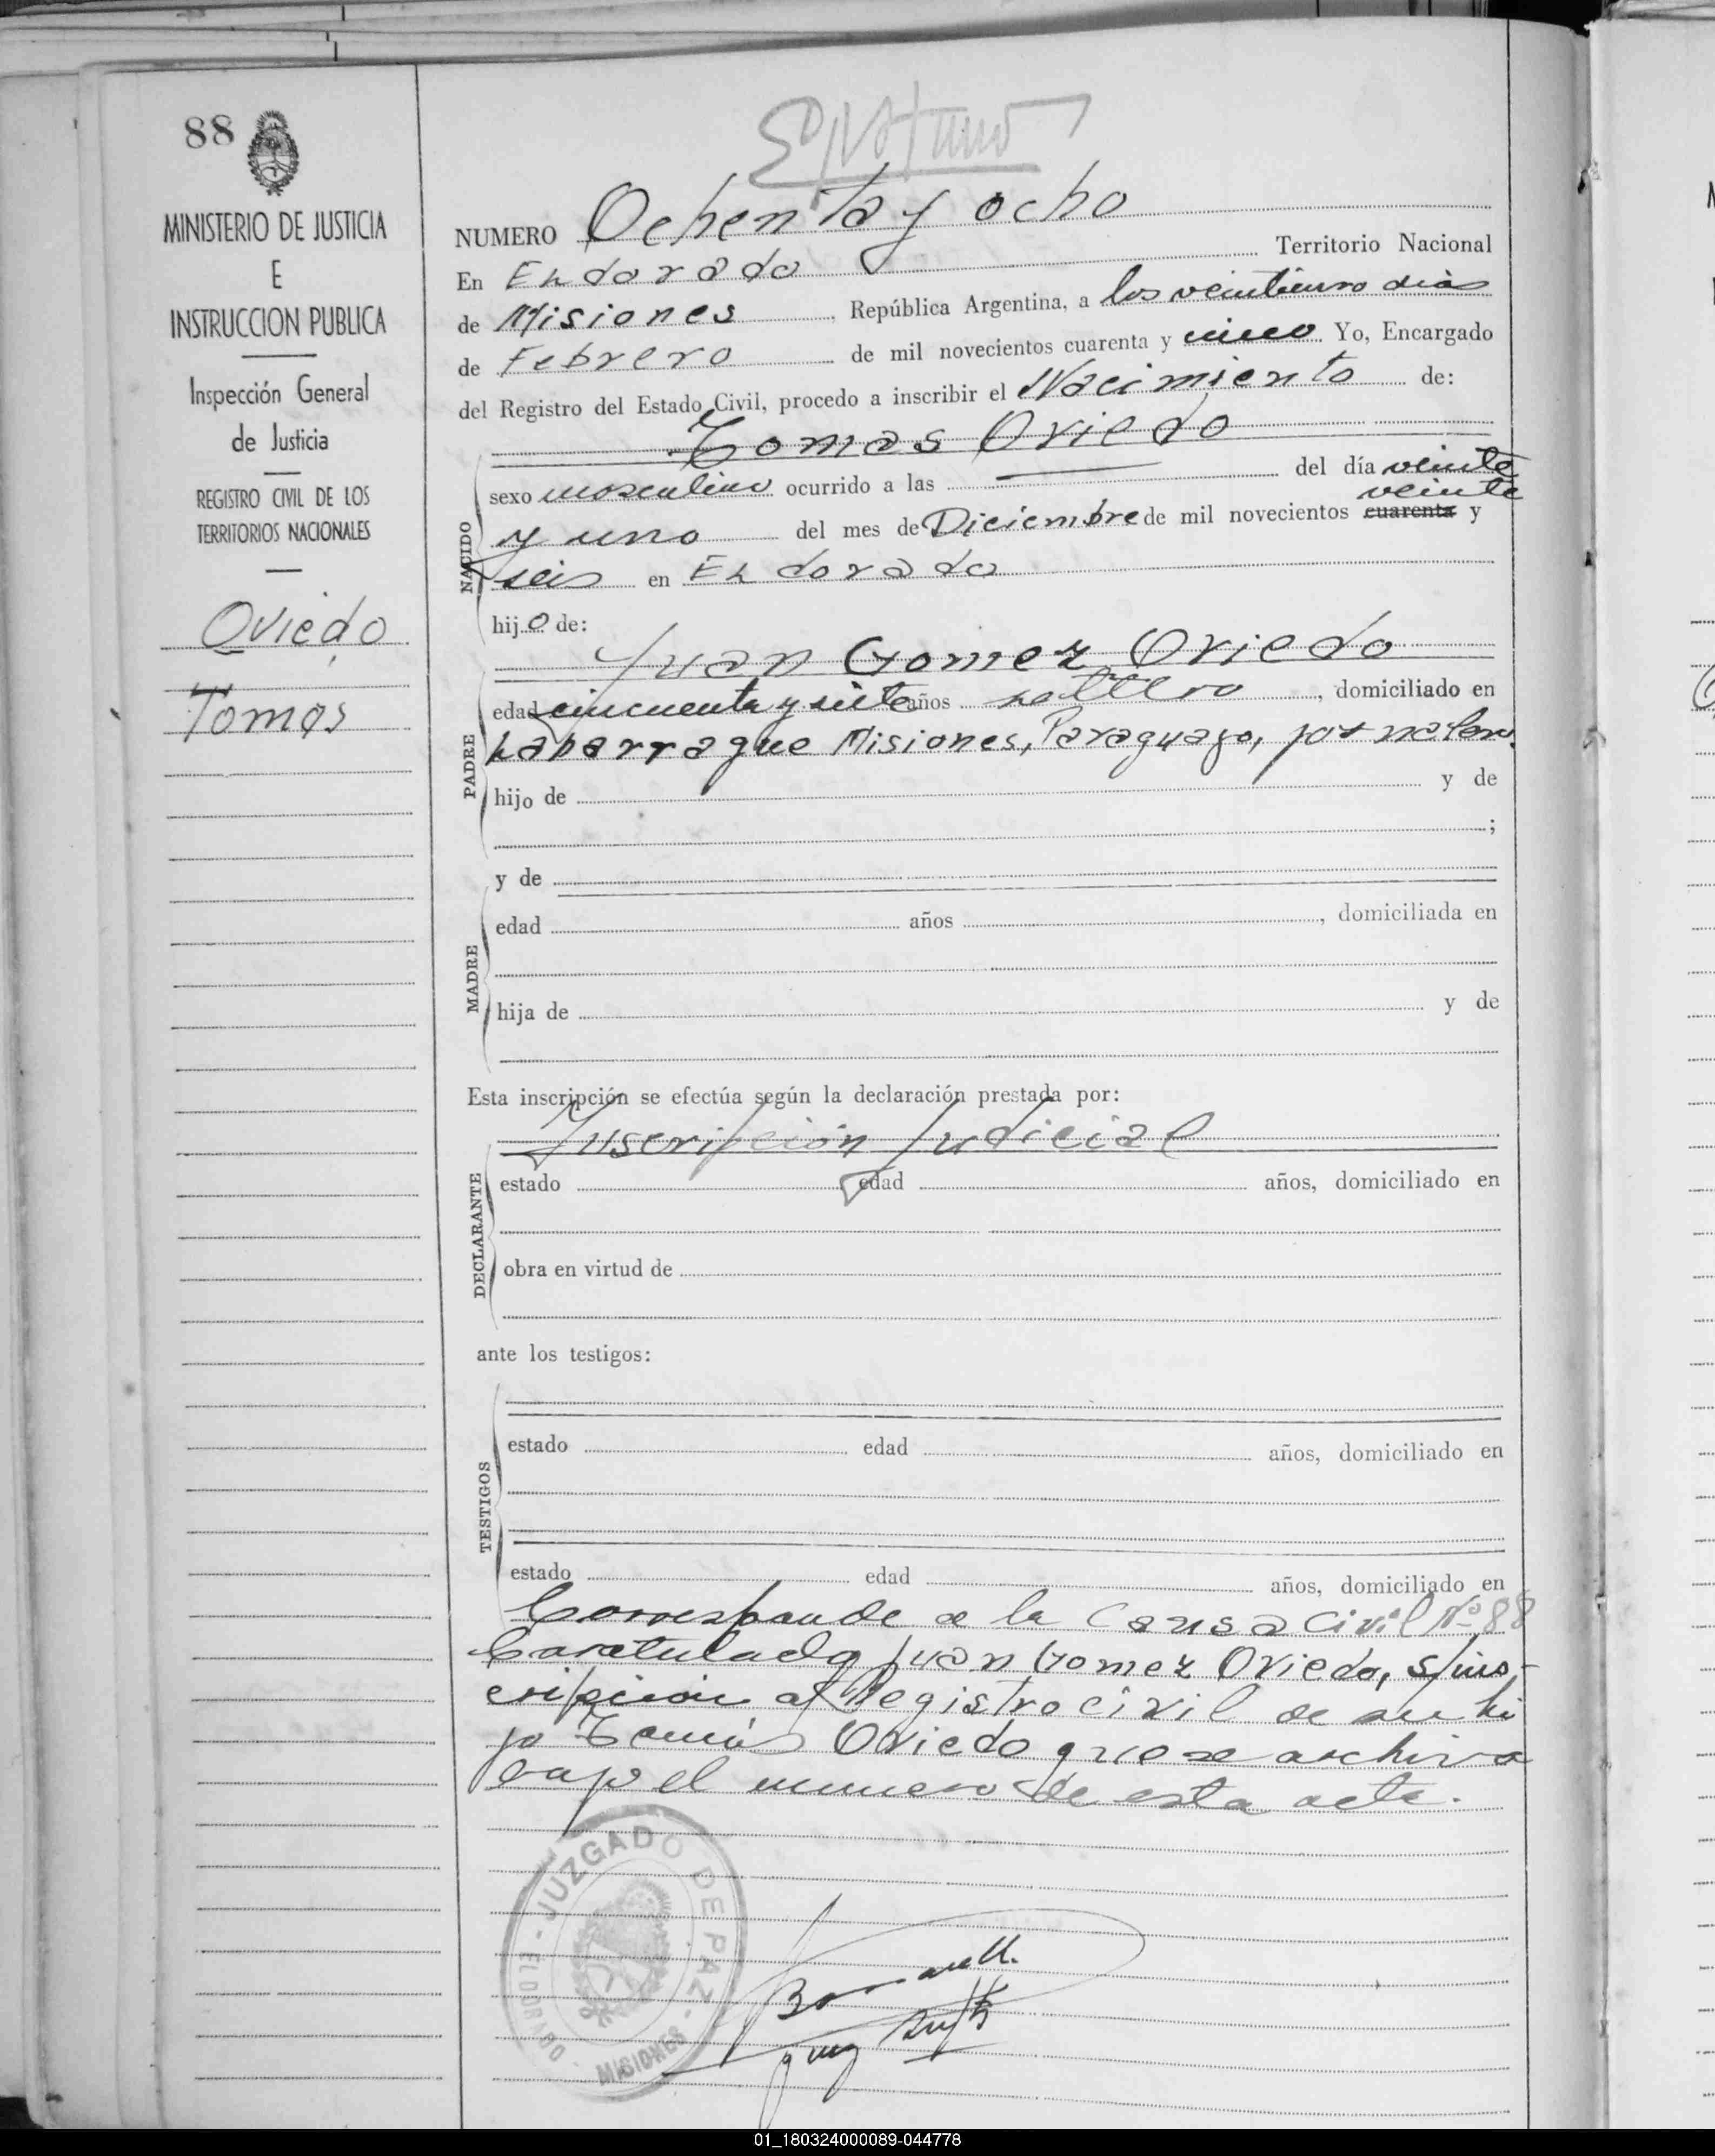 88
MINISTERIO DE JUSTICIA
E
INSTRUCCION PUBLICA
Inspección General
de Justicia
REGISTRO CIVIL DE LOS
TERRITORIOS NACIONALES
Oviedo
Tomas
NUMERO Ochenta y ocho
En Eldorado Territorio Nacional
de Misiones, República Argentina, a los veintiuno dias
de Febrero de mil novecientos cuarenta y cinco Yo, Encargado
del Registro del Estado Civil, procedo a inscribir el Nacimiento de:
Tomas Oviedo
NACIDO
sexo masculino ocurrido a las — del día veinte
veinte
y uno del mes de Diciembre de mil novecientos cuarenta y
seis en Eldorado
hijo de:
Juan Gomez Oviedo
PADRE
edad cincuenta y siete años soltero, domiciliado en
Laharrague Misiones, Paraguayo, jornalero.
hijo de y de
;
y de
MADRE
edad años , domiciliada en
hija de y de
Esta inscripción se efectúa según la declaración prestada por:
Inscripción Judicial
DECLARANTE
estado edad años, domiciliado en
obra en virtud de
ante los testigos:
TESTIGOS
estado edad años, domiciliado en
estado edad años, domiciliado en
Corresponde a la Causa Civil Nº 88
Caratulada Juan Gomez Oviedo, s/ins-
cripcion al Registro civil de su hi
jo Tomás Oviedo que se archiva
bajo el numero de esta acta.
JUZGADO DE PAZ
ELDORADO
MISIONES
Juez Supte
01_180324000089-044778